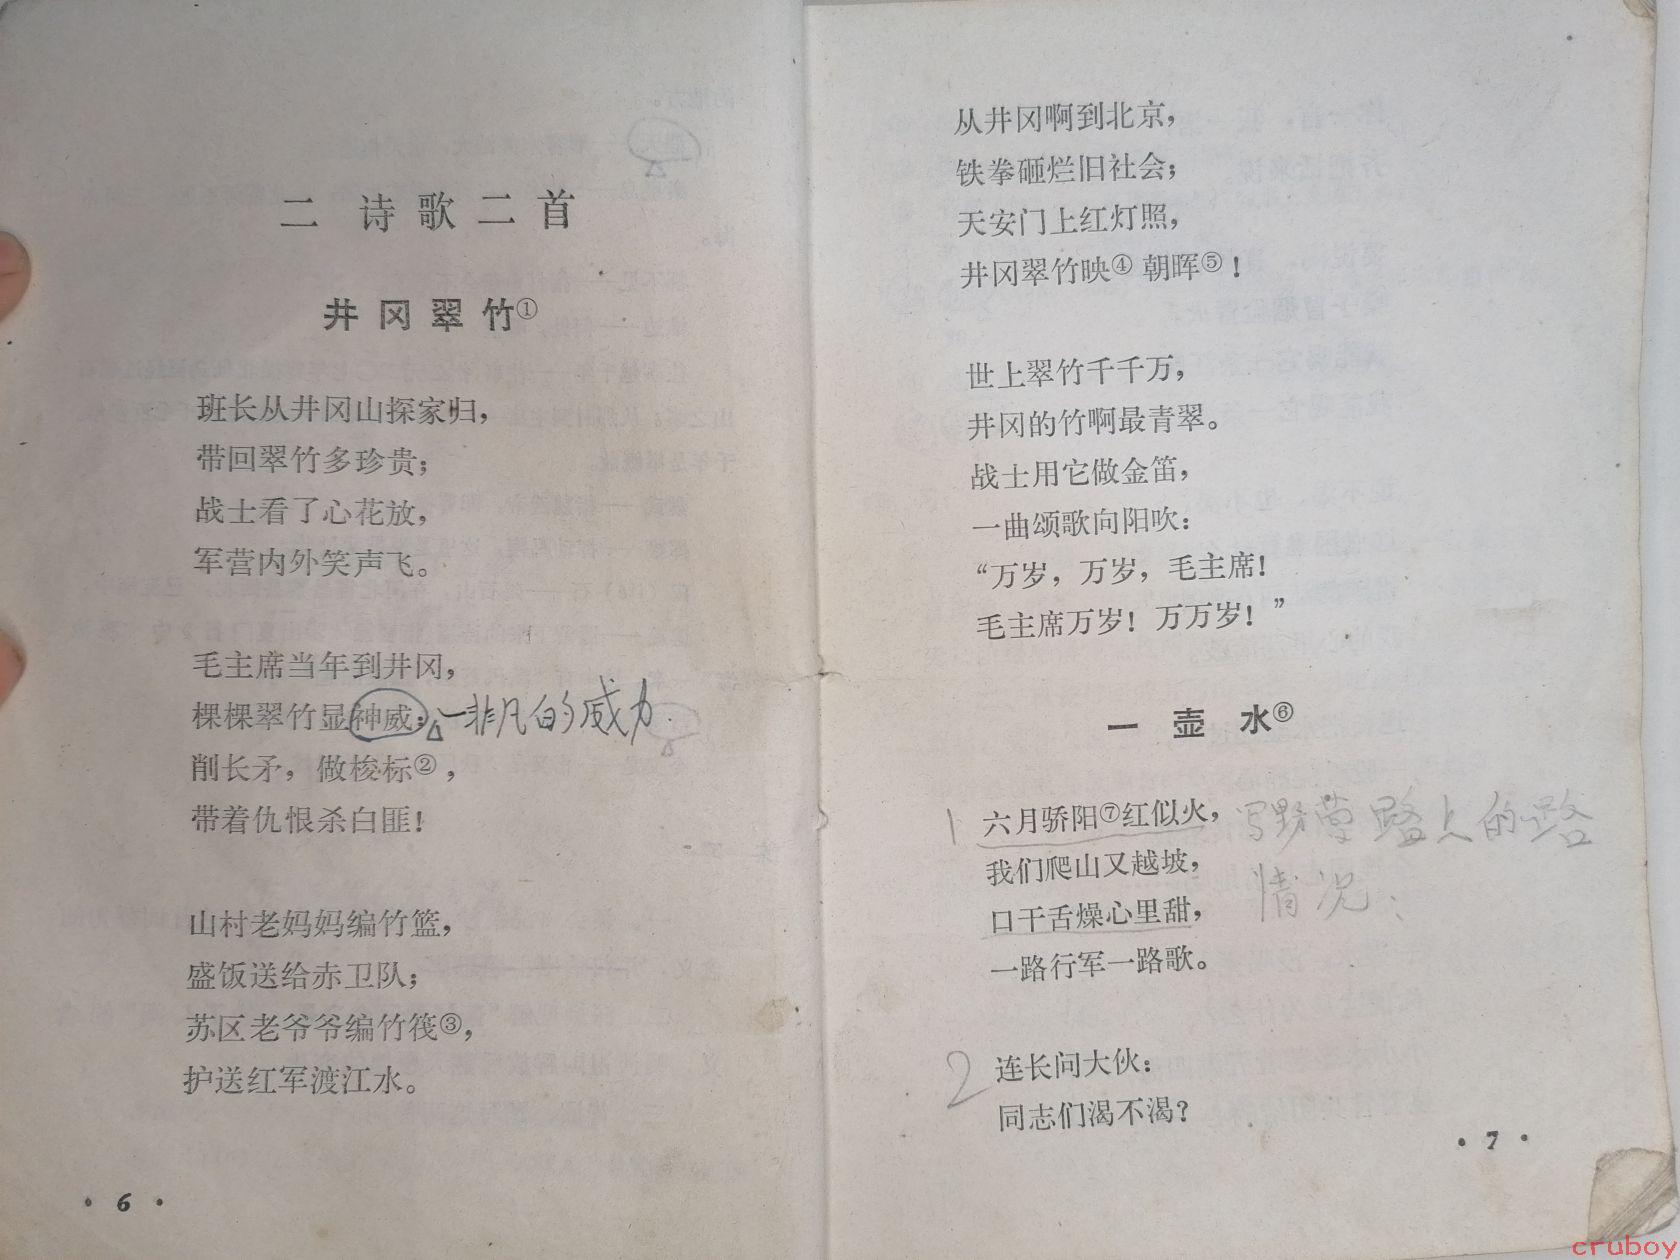 二 诗歌二首
井冈翠竹①
班长从井冈山探家归，
带回翠竹多珍贵；
战士看了心花放，
军营内外笑声飞。
毛主席当年到井冈，
棵棵翠竹显神威；—非凡的威力.
削长矛，做梭标②，
带着仇恨杀白匪！
山村老妈妈编竹篮，
盛饭送给赤卫队；
苏区老爷爷编竹筏③，
护送红军渡江水。
·6·
从井冈啊到北京，
铁拳砸烂旧社会；
天安门上红灯照，
井冈翠竹映④朝晖⑤！
世上翠竹千千万，
井冈的竹啊最青翠。
战士用它做金笛，
一曲颂歌向阳吹：
“万岁，万岁，毛主席！
毛主席万岁！万万岁！”
一壶水⑥
1 六月骄阳⑦红似火，写野营路上的路
我们爬山又越坡，
情况；
口干舌燥心里甜，
一路行军一路歌。
2 连长问大伙：
同志们渴不渴？
·7·
cruboy